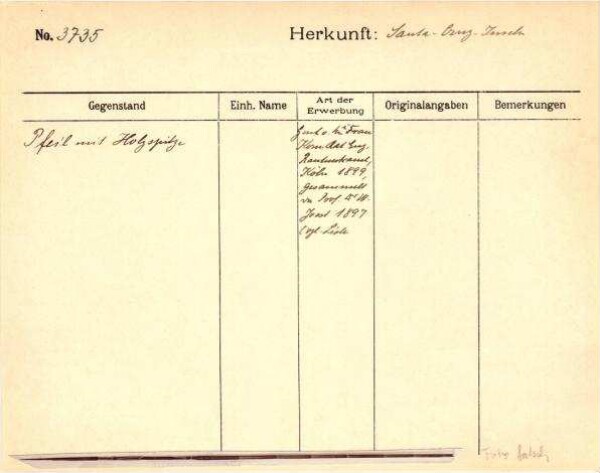 No. 3735
Herkunft: Santa-Cruz-Inseln
Gegenstand
Einh. Name
Art der Erwerbung
Originalangaben
Bemerkungen
Pfeil mit Holzspitze
Frau
Köln 1899,
gesammelt
v. Prof. Dr. W.
Joest 1897
vgl. Liste
Foto